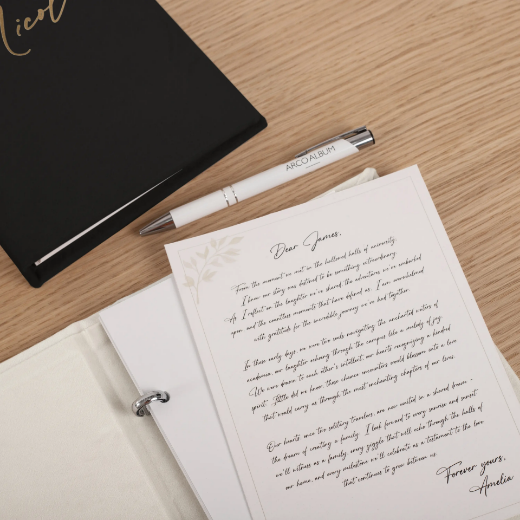 Nicol
ARCO ALBUM
Dear James,
From the moment we met in the hallowed halls of university,
I knew our story was destined to be something extraordinary.
As I reflect on the laughter we've shared, the adventures we've embarked
upon, and the countless moments that have defined us, I am overwhelmed
with gratitude for the incredible journey we've had together.
In those early days, we were two souls navigating the enchanted waters of
academia, our laughter echoing through the campus like a melody of joy.
We were drawn to each other's intellect, our hearts recognizing a kindred
spirit. Little did we know, those chance encounters would blossom into a love
that would carry us through the most enchanting chapters of our lives.
Our hearts, once two solitary travelers, are now united in a shared dream -
the dream of creating a family. I look forward to every sunrise and sunset
we'll witness as a family, every giggle that will echo through the halls of
our home, and every milestone we'll celebrate as a testament to the love
that continues to grow between us.
Forever yours,
Amelia